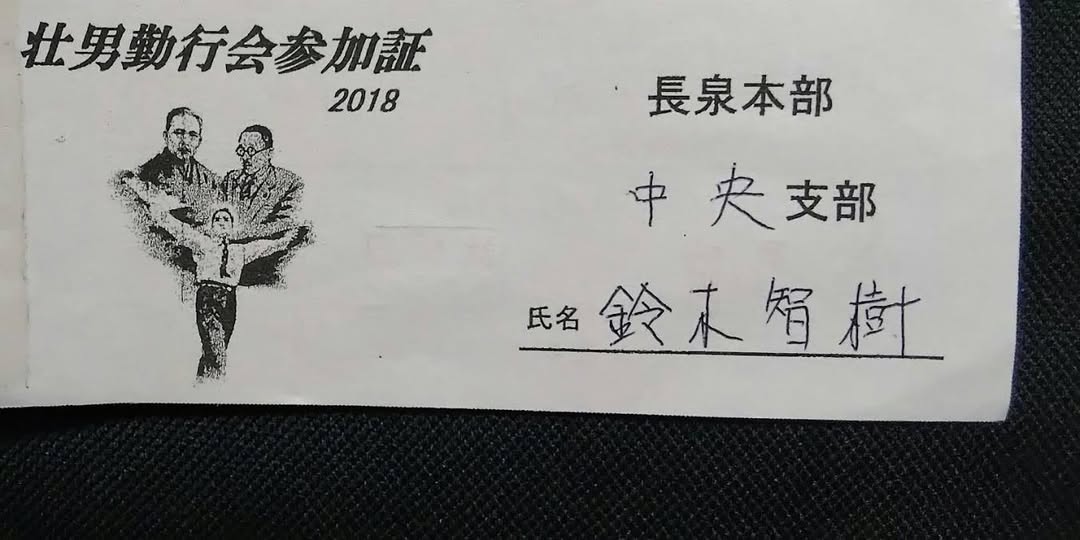 壮男勤行会参加証
2018
長泉本部
中央支部
氏名 鈴木智樹